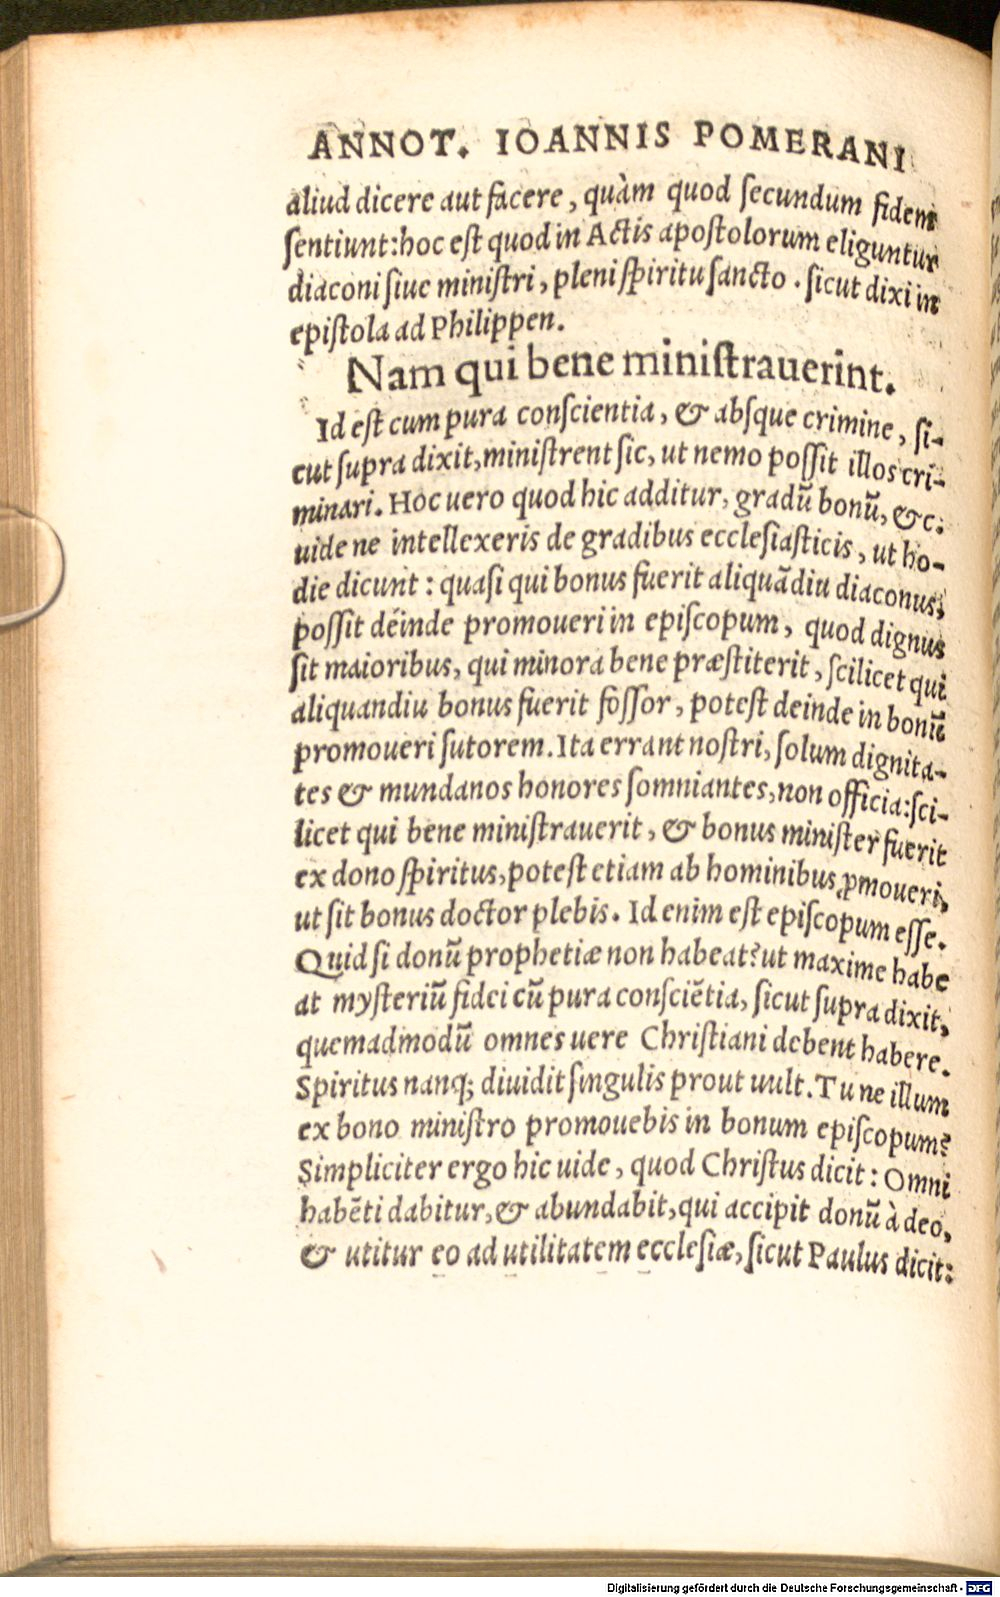 ANNOT. IOANNIS POMERANI
aliud dicere aut facere, quàm quod ſecundum fidem
ſentiunt: hoc eſt quod in Actis apoſtolorum eliguntur
diaconi ſiue miniſtri, pleni ſpiritu ſancto. ſicut dixi in
epiſtola ad Philippen.
Nam qui bene miniſtrauerint.
Id eſt cum pura conſcientia, & abſque crimine, ſi-
cut ſupra dixit, miniſtrent ſic, ut nemo poſſit illos cri-
minari. Hoc uero quod hic additur, gradū bonū, &c.
uide ne intellexeris de gradibus eccleſiaſticis, ut ho-
die dicunt: quaſi qui bonus fuerit aliquādiu diaconus,
poſſit deinde promoueri in epiſcopum, quod dignus
ſit maioribus, qui minora bene præſtiterit, ſcilicet qui
aliquandiu bonus fuerit foſſor, poteſt deinde in bonū
promoueri ſutorem. Ita errant noſtri, ſolum dignita-
tes & mundanos honores ſomniantes, non officia: ſci-
licet qui bene miniſtrauerit, & bonus miniſter fuerit
ex dono ſpiritus, poteſt etiam ab hominibus ꝓmoueri,
ut ſit bonus doctor plebis. Id enim eſt epiſcopum eſſe.
Quid ſi donū prophetiæ non habeat? ut maxime habe
at myſteriū fidei cū pura conſciētia, ſicut ſupra dixit,
quemadmodū omnes uere Chriſtiani debent habere.
Spiritus nanq; diuidit ſingulis prout uult. Tu ne illum
ex bono miniſtro promouebis in bonum epiſcopum?
Simpliciter ergo hic uide, quod Chriſtus dicit: Omni
habēti dabitur, & abundabit, qui accipit donū à deo,
& utitur eo ad utilitatem eccleſiæ, ſicut Paulus dicit:
Digitalisierung gefördert durch die Deutsche Forschungsgemeinschaft - DFG